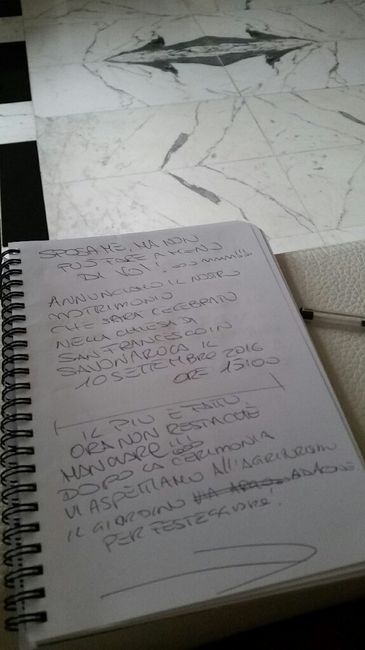 SPOSA ME, MA NON
PUÒ FARE A MENO
DI VOI!
ANNUNCIAMO IL NOSTRO
MATRIMONIO
CHE SARÀ CELEBRATO
NELLA CHIESA DI
SAN FRANCESCO IN
SAVONAROLA IL
10 SETTEMBRE 2016
ORE 15:00
IL PIÙ È FATTO
ORA NON RESTA CHE
DOPO LA CERIMONIA
VI ASPETTIAMO ALL'AGRITURISMO
IL GIARDINO
PER FESTEGGIARE!